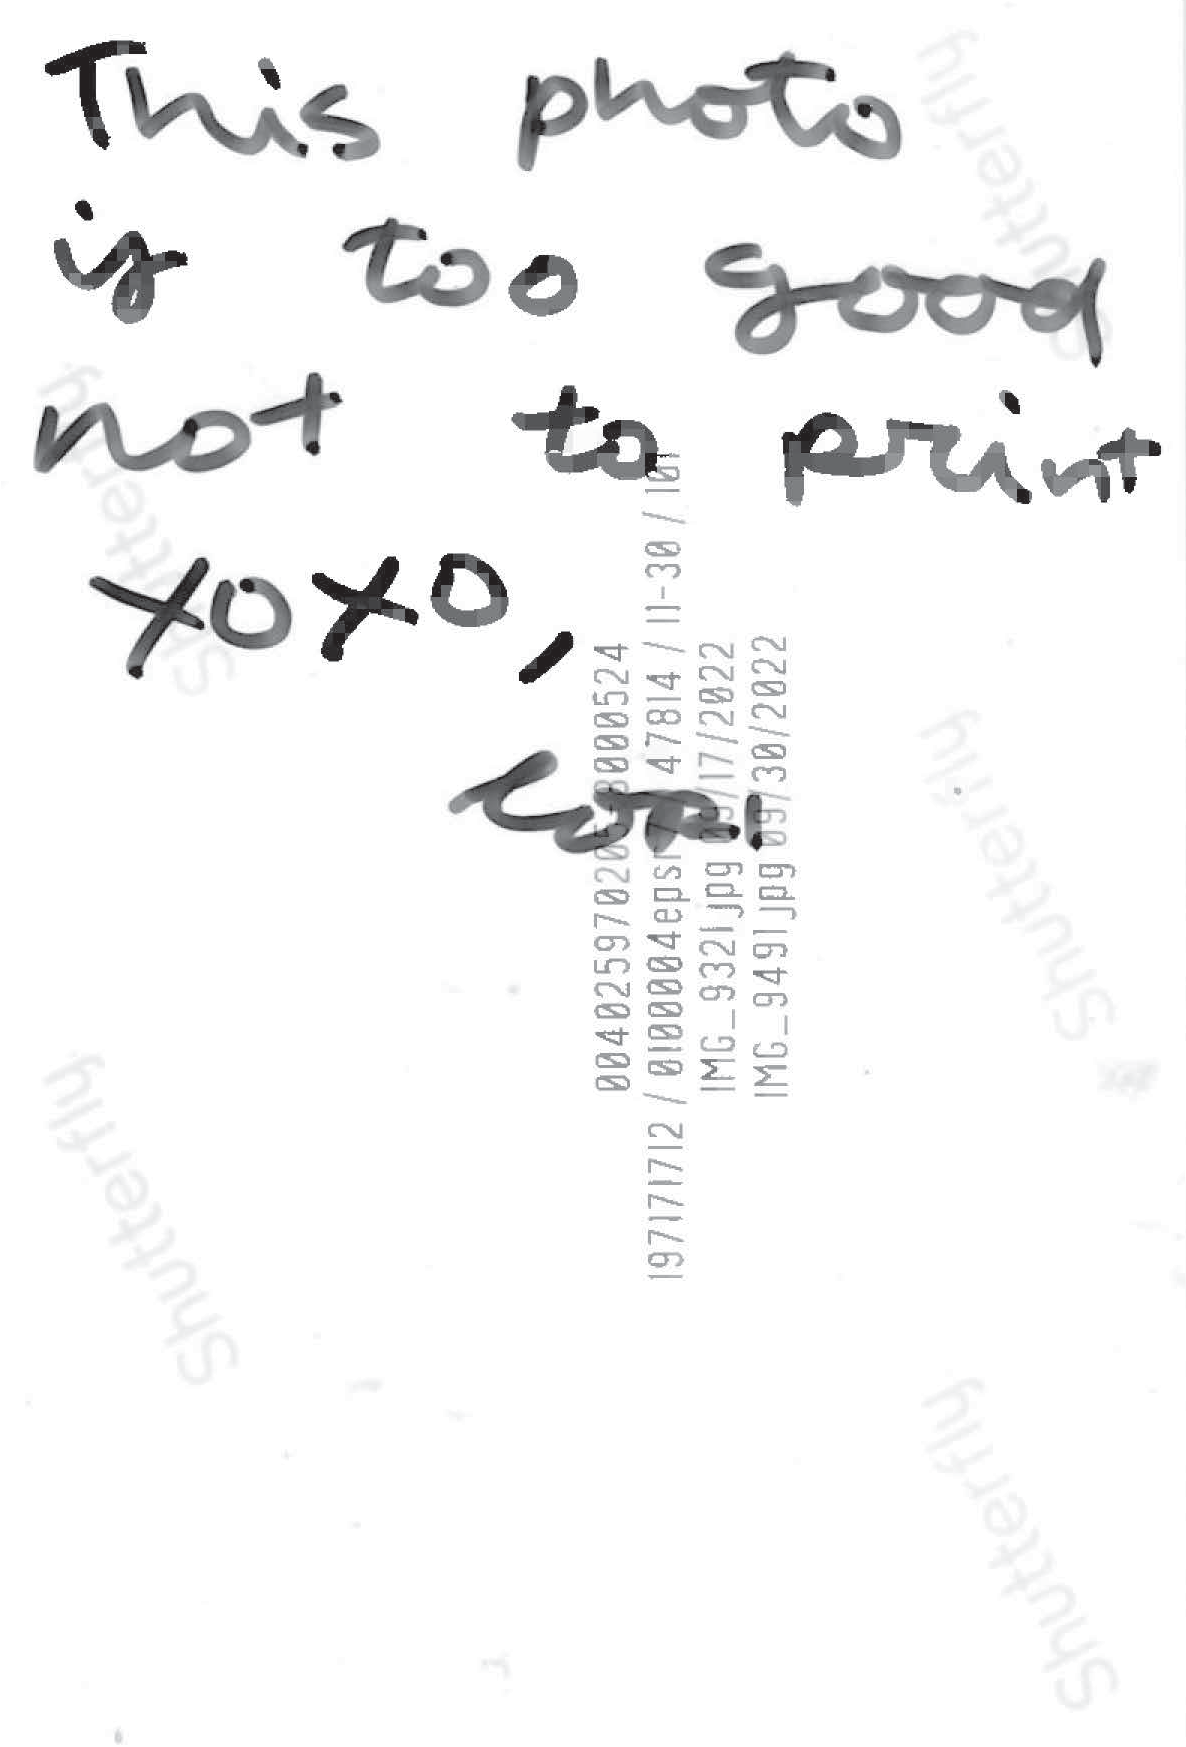 This photo
is too good
not to print
xoxo,
Lori
004025970205-8000524
197171712 / 0100004epsr 47814 / 11-30 / 101
IMG_9321.jpg 09/17/2022
IMG_9491.jpg 09/30/2022
Shutterfly
Shutterfly
Shutterfly
Shutterfly
Shutterfly